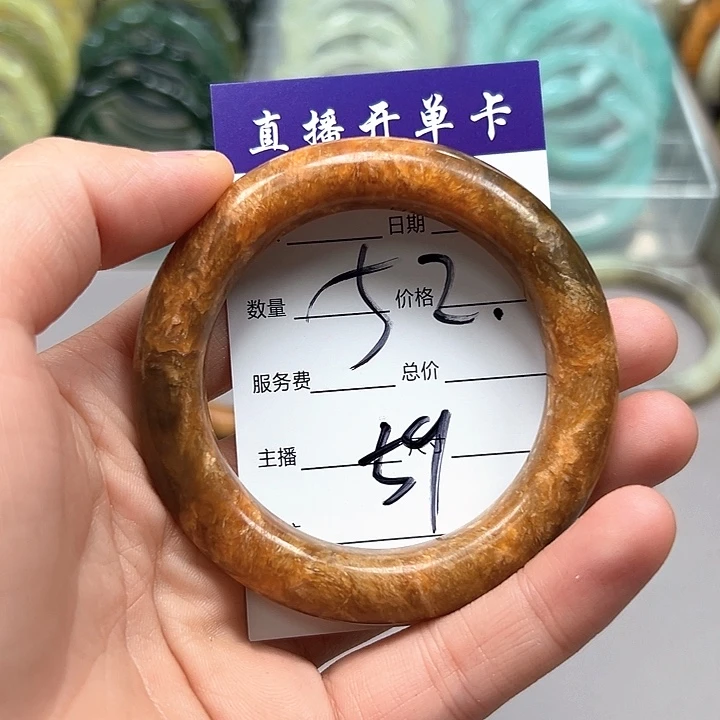 直播开单卡
日期
数量 价格
52.
服务费 总价
主播 尺寸
59